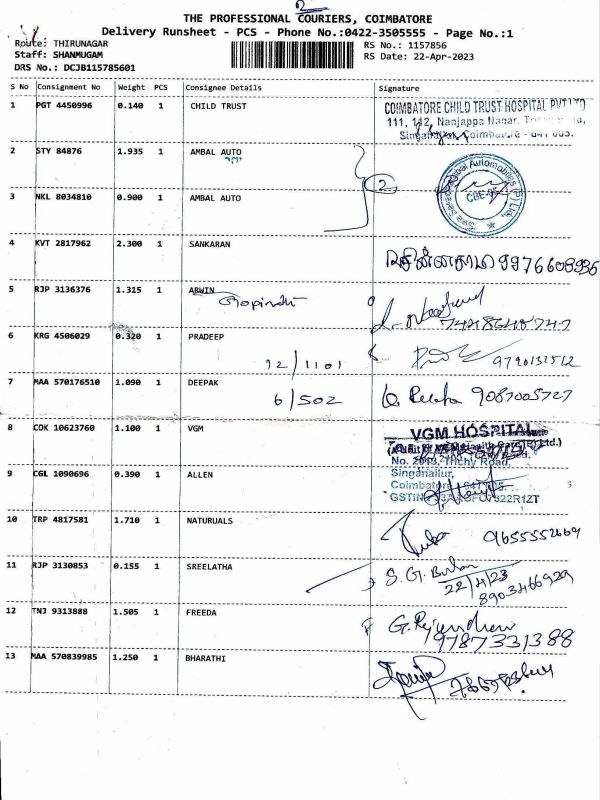 2
THE PROFESSIONAL COURIERS, COIMBATORE
Delivery Runsheet - PCS - Phone No.:0422-3505555 - Page No.:1
Route: THIRUNAGAR
RS No.: 1157856
Staff: SHANMUGAM
RS Date: 22-Apr-2023
DRS No.: DCJB115785601
S No Consignment No Weight PCS Consignee Details Signature
1 PGT 4450996 0.140 1 CHILD TRUST
COIMBATORE CHILD TRUST HOSPITAL PVT LTD
111, 112, Nanjappa Nagar,
Singanallur, Coimbatore - 641 005.
2 STY 84876 1.935 1 AMBAL AUTO
2
CBE-05
3 NKL 8034810 0.900 1 AMBAL AUTO
4 KVT 2817962 2.300 1 SANKARAN
9976608936
5 RJP 3136376 1.315 1 ARWIN
Gopinath
6 KRG 4506029 0.320 1 PRADEEP
12/1101
9790131512
7 MAA 570176510 1.090 1 DEEPAK
6/502
9087005727
8 COK 10623760 1.100 1 VGM
VGM HOSPITAL
Trichy Road,
Singanallur,
9 CGL 1090696 0.390 1 ALLEN
10 TRP 4817581 1.710 1 NATURUALS
9655552669
11 RJP 3130853 0.155 1 SREELATHA
S. G.
22/4/23
8903466929
12 TNJ 9313888 1.505 1 FREEDA
G. Rajendran
9787331388
13 MAA 570839985 1.250 1 BHARATHI